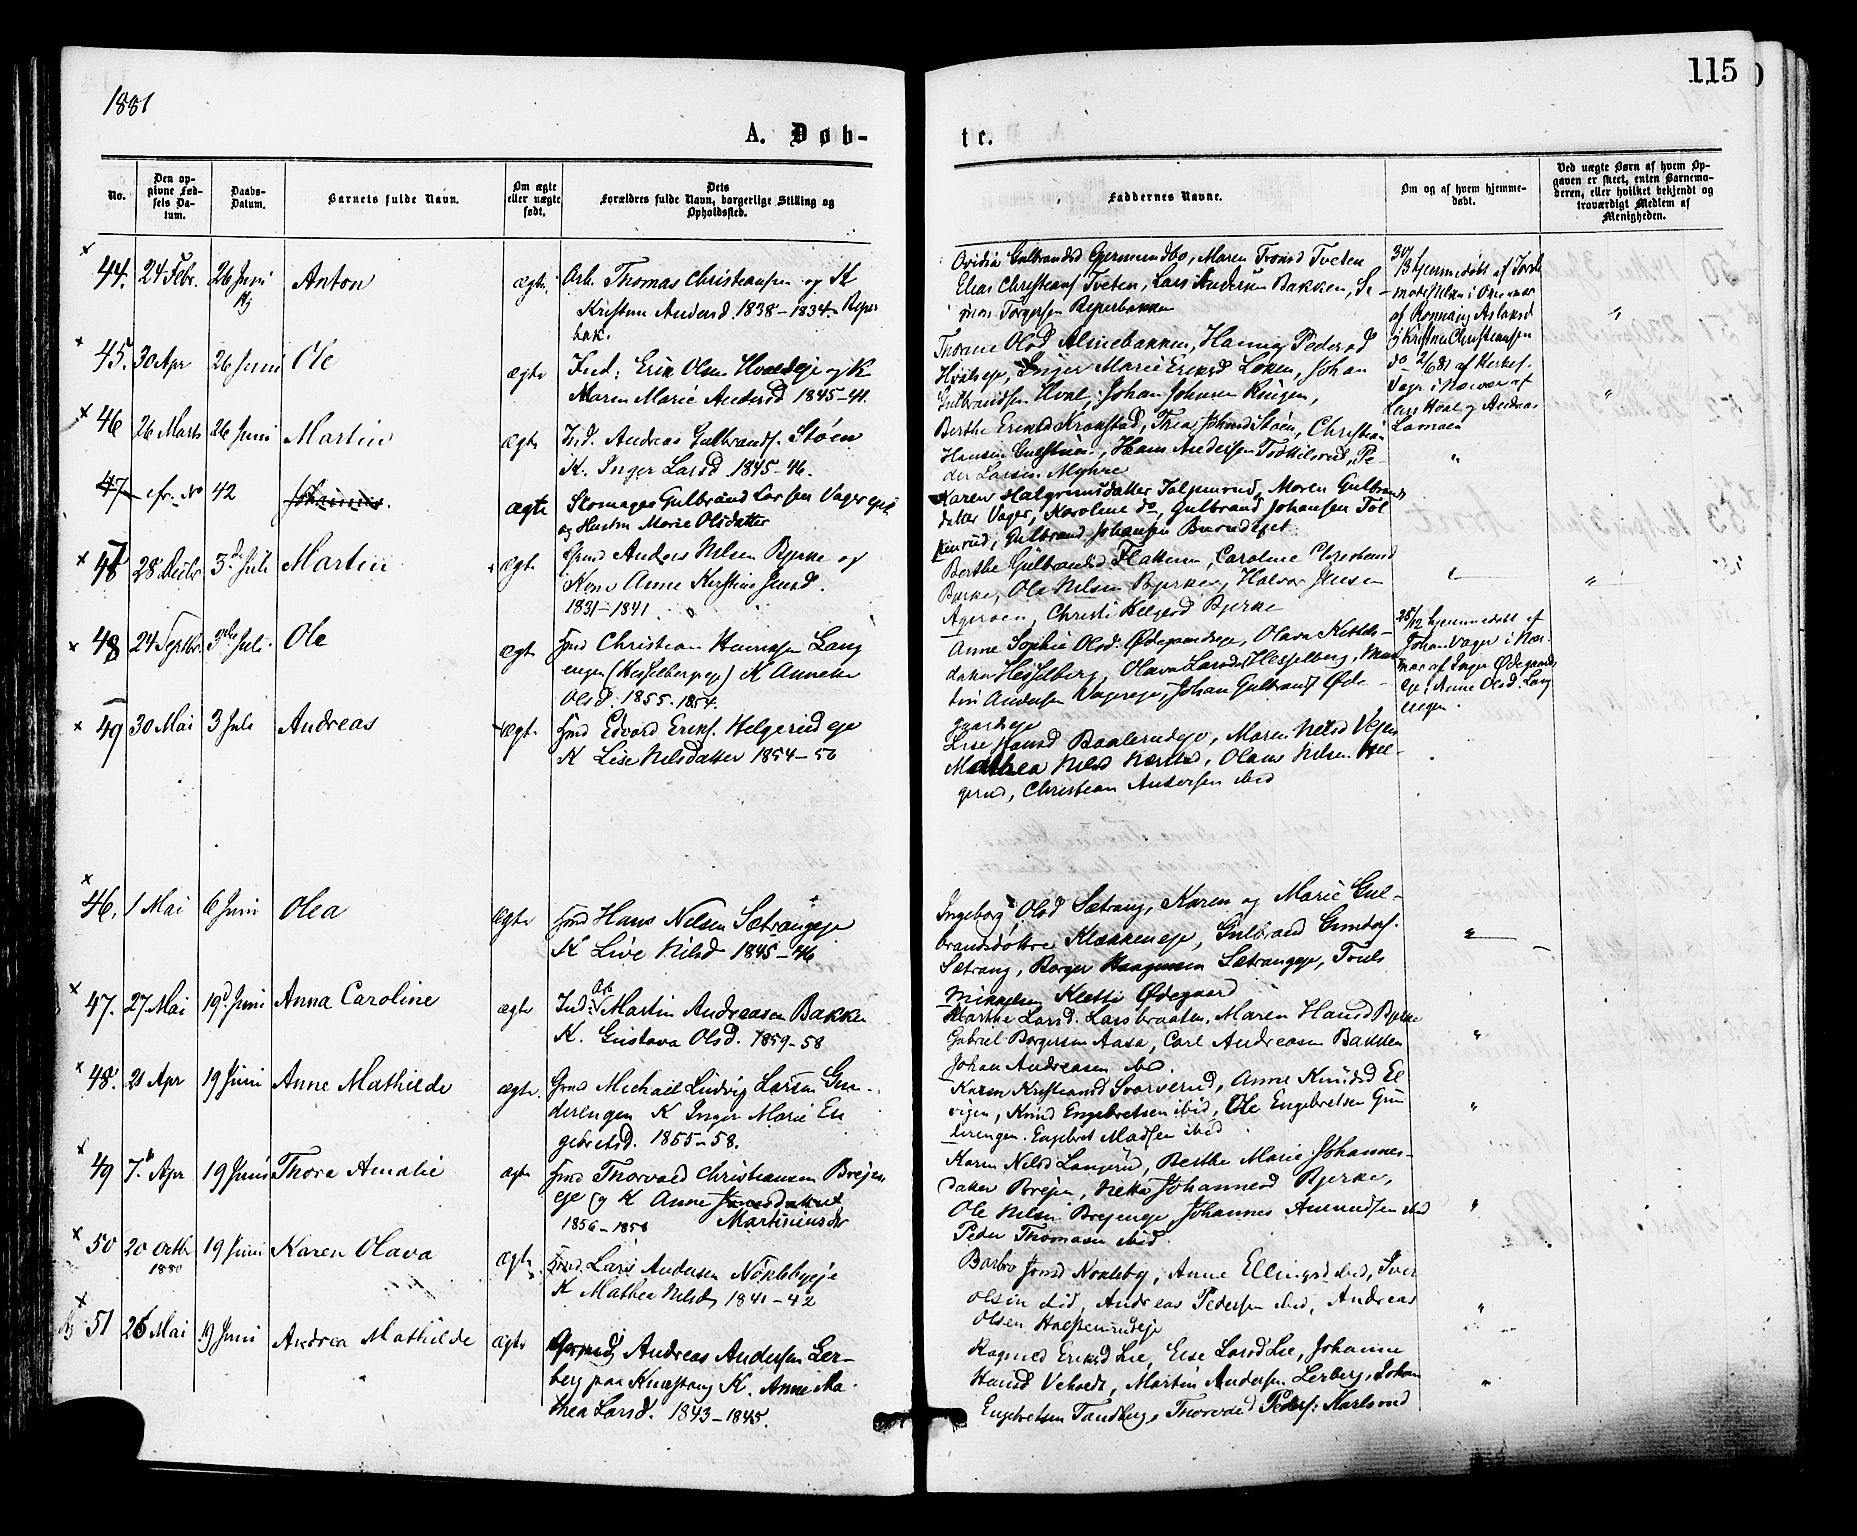 1881
115
A. Døb-
te.
No.
Den op-
givne Fød-
sels Da-
tum.
Daabs-
Datum.
Barnets fulde Navn.
Om ægte
eller uægte
født.
Dets
Forældres fulde Navn, borgerlige Stilling og
Opholdssted.
Faddernes Navne.
Om og af hvem hjemme-
døbt.
Ved uægte Børn af hvem Op-
gaven er skeet, enten Barnemo-
deren, eller hvilket bekjendt og
troværdigt Medlem af
Menigheden.
44. 24 Febr. 26 Juni Anton ægte. Arb. Thomas Christiansen og K
Kristine Andersd. 1838-1834.
bak.
Gulbrandsd Gjermundbo, Maren Tveten
Elias Christians Tveten, Lars Andersen Bakken, Si-
mon Torgersen Reperbakken
hjemmedøbt af
45. 30 Apr 26 Juni Ole ægte Ind: Erik Olsen Hvalseje og K
Maren Marie Andersd 1845-44.
Olsd Alinebakken, Hanna Pedersd
Hvalseje, Inger Marie Eriksd Loken, Johan
Gulbrandsen Hval, Johan Johnsen Ringen,
46 26 Marts 26 Juni Martin ægte Ind. Andreas Gulbrands. Støen
K. Inger Larsd 1845-46.
Berthe Eriksd Krakstad, Thea Støen, Christian
Hansen, Hans Andersen, Pe-
der Larsen Myhre
47 cfr. No 42 Johannes. ægte Skomager Gulbrand Larsen Vager
og Hustru Marie Olsdatter
Karen Halgrimsdatter, Maren Gulbrands
datter Vager, Karoline do, Gulbrand Johansen Tol-
Gulbrand Johansen
47 28 Decbr 3d Juli Martin ægte Anders Nilsen Bjerke og
Kone Anne Kirstine
1831-1841
Berthe Gulbrandsd Flaktum, Caroline
Bjerke, Ole Nilsen Bjerke, Halvor Jensen
Christi Helgesd Bjerke
48 24 Septbr. 3die Juli Ole ægte Hmd Christian Lang
engen (Hesselbergeje) K Annette
Olsd. 1855-1854.
Anne Sophie Olsd. Ødegaardseje, Olava
datter Hesselberg, Olava Larsdr Hesselberg, Mar
tin Andersen Vagereje, Johan Gulbrands Øde-
gaardseje
25/12 hjemmedøbt af
Johan Vager i Nær-
vær af Inger Ødegaards
eje, Anne Olsd. Lang
engen.
49 30 Mai 3 Juli Andreas ægte Hmd Edvard Eriks. Helgerudeje
K Lise Nilsdatter 1854-56
Lise Hansd, Maren Nilsd Vejen
Mathea Nilsd, Olaus Nilsen Hel-
gerud, Christian Andersen ibid
46. 1 Mai 6 Juni Olea ægte Hmd Hans Nilsen Sætrangeje
K Live Nilsd 1845-46
Ingeborg Olsd Sætrang, Karen og Marie Gul-
brandsdøttre Klækkeneje, Gulbrand Gunders.
Sætrang, Borger Haagensen Sætrangeje, Truls
Mikkelsen Kletti Ødegaard
47. 27 Mai 19d Juni Anna Caroline ægte Ind: Arb Martin Andreasen Bakken
K. Gustava Olsd. 1859-58
Marthe Larsd. Larsbraaten, Maren Hansd Bjerke
Gabriel Borgersen Aasa, Carl Andreasen Bakken
Johan Andreasen ibid.
48. 21 Apr 19 Juni Anne Mathilde ægte. Grmd Michael Ludvig Larsen Gun-
derengen K Inger Marie En
gebretsd. 1855-58.
Karen Kristiansd Svarverud, Anne Knudsd El
vigen, Knud Engebretsen ibid, Ole Engebretsen Gun
derengen. Engebret Madsen ibid
49 7. Apr 19 Juni Thora Amalie ægte Hmd Thorvald Christiansen Brejen
eje og K Anne Jensdatter
1856-1858 Martiniusdr
Karen Nilsd Langerud, Berthe Marie Johannes-
datter Brejen, Johannesd Bjerke,
Ole Nilsen Brejeneje, Johannes Amundsen ibid
Peder Thomasen ibid.
50 20 Octbr 1880 19 Juni Karen Olava ægte. Hmd. Lars Andersen Nöklebyeje
K Mathea Nilsd 1841-42
Barbro Jonsd Nökleby, Anne Ellingsd ibid, Iver
Olsen ibid, Andreas Pedersen ibid, Andreas
Olsen
51 26 Mai 19 Juni Andrea Mathilde ægte Andreas Andersen Ler-
berg paa Knestang K. Anne Ma-
thea Larsd. 1843-1845.
Ragnild Eriksd Lie, Else Larsd Lie, Johanne
Hansd, Martin Andersen Lerberg, Johan
Engebretsen Tandberg, Thorvald Peders: Karlsrud